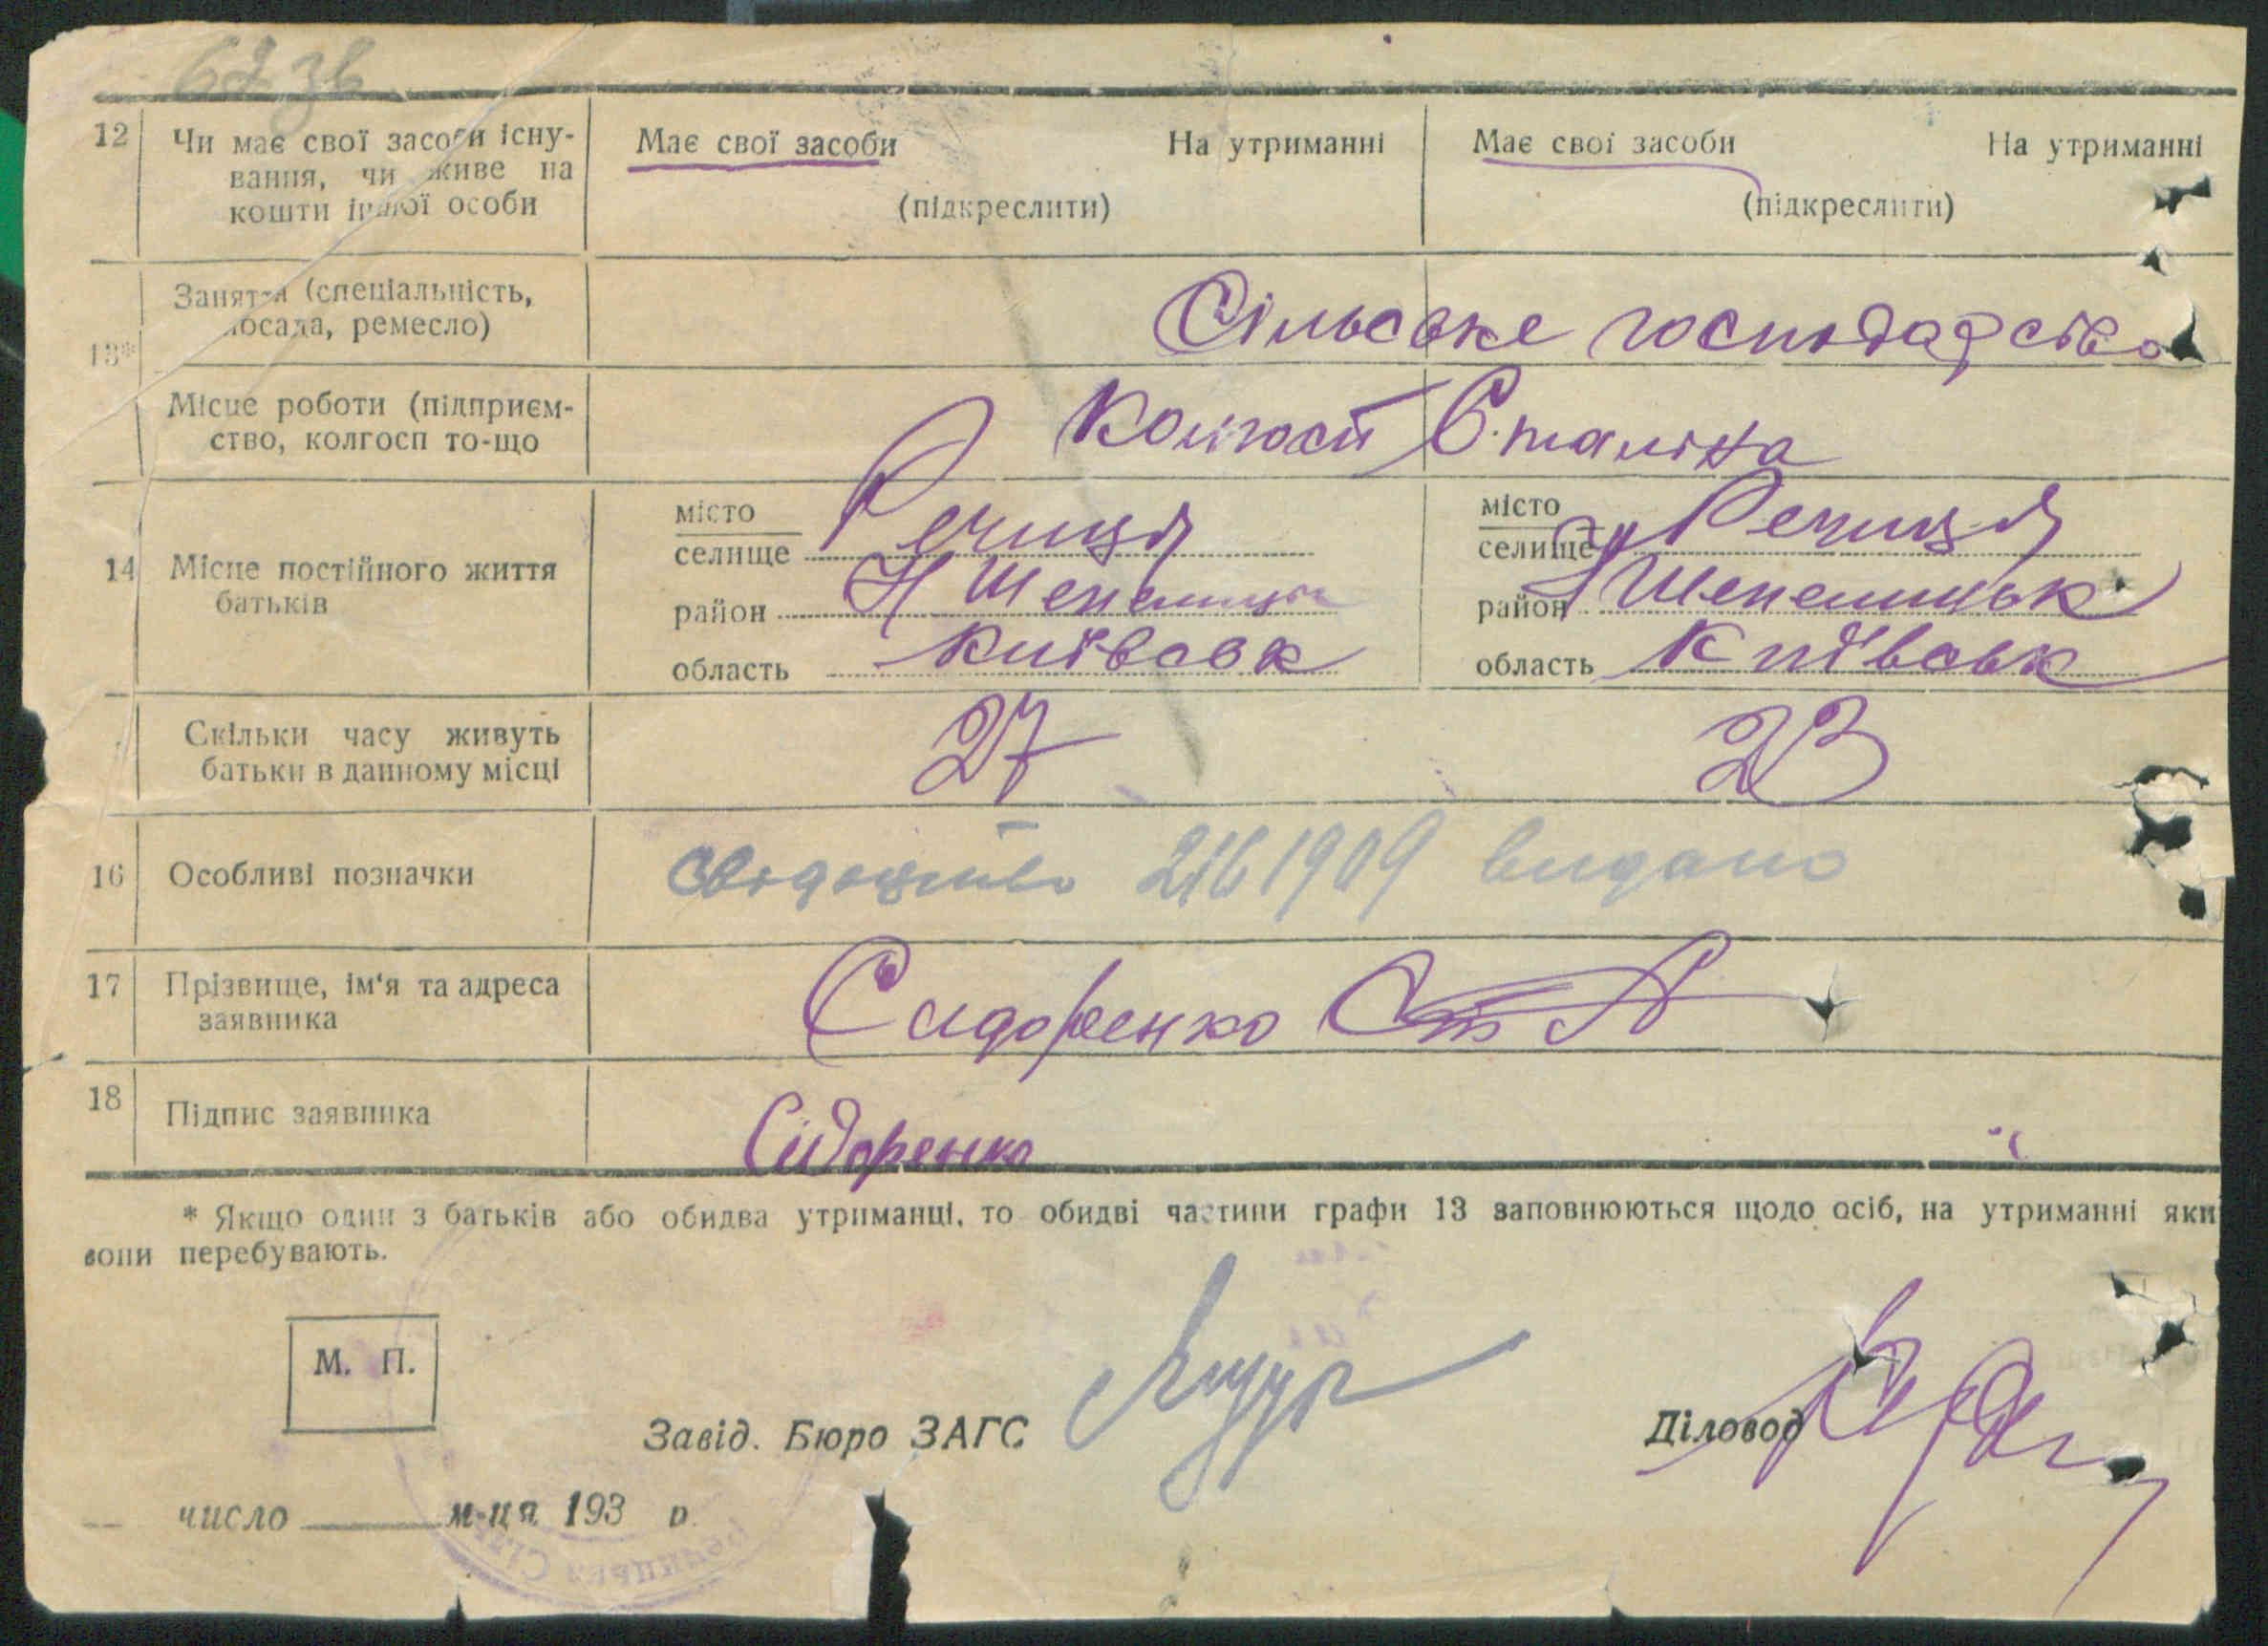 12 Чи має свої засоби існу-
вання, чи живе на
кошти іншої особи
Має свої засоби На утриманні
(підкреслити)
Має свої засоби На утриманні
(підкреслити)
13*
Заняття (спеціальність,
посада, ремесло)
Сільське господарство
Місце роботи (підприєм-
ство, колгосп то-що
Колгосп Сталіна
14 Місце постійного життя
батьків
місто
селище Речиця
район Н Шепелицьк
область Київськ
місто
селище Речиця
район Н Шепелицьк
область Київськ
Скільки часу живуть
батьки в данному місці
27 23
16 Особливі позначки
свідоцтво 2161909 видано
17 Прізвище, ім'я та адреса
заявника
Сидоренко
18 Підпис заявника
Сидоренко
* Якщо один з батьків або обидва утриманці, то обидві частини графи 13 заповнюються щодо осіб, на утриманні яки
вони перебувають.
М. П.
Завід. Бюро ЗАГС
Діловод
число м-ця 193 р.
Речицька Сіл